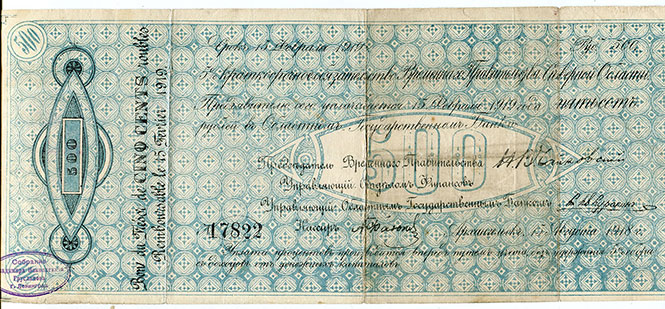 500
Срокъ 15 Февраля 1919 г.
Руб. 500.
5% Краткосрочное обязательство Временнаго Правительства Сѣверной Области.
Предъявителю сего уплачивается 15 Февраля 1919 года пятьсотъ
рублей въ Областномъ Государственномъ Банкѣ
500
Предсѣдатель Временнаго Правительства
Управляющій Отдѣломъ Финансовъ
Управляющій Областнымъ Государственнымъ Банкомъ
Кассиръ
17822
Архангельскъ, 15 Августа 1918 г.
Уплата процентовъ производится впередъ путемъ учета,
съ доходовъ отъ денежныхъ капиталовъ
500
Bon du Trésor de CINQ CENTS roubles
Remboursable le 15 Février 1919.
Собрание